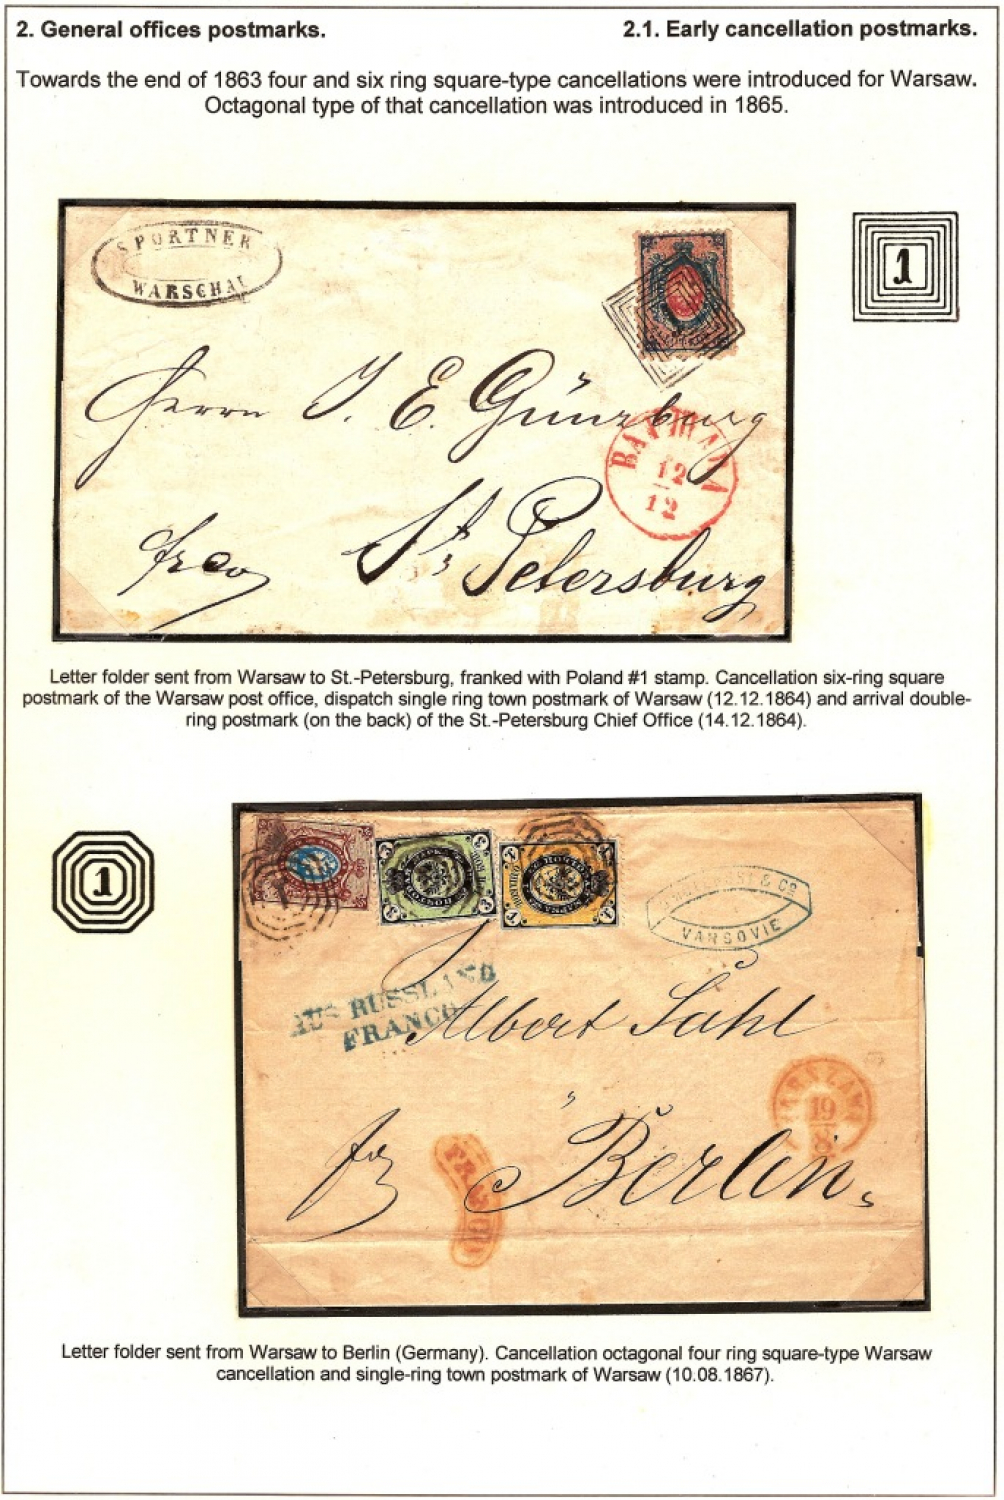 2. General offices postmarks. 2.1. Early cancellation postmarks.
Towards the end of 1863 four and six ring square-type cancellations were introduced for Warsaw.
Octagonal type of that cancellation was introduced in 1865.
SPORTNER
WARSCHAU
1
Herrn J. E. Günzburg
12
12
frco St. Petersburg
Letter folder sent from Warsaw to St.-Petersburg, franked with Poland #1 stamp. Cancellation six-ring square
postmark of the Warsaw post office, dispatch single ring town postmark of Warsaw (12.12.1864) and arrival double-
ring postmark (on the back) of the St.-Petersburg Chief Office (14.12.1864).
1
& Co
VARSOVIE
AUS RUSSLAND
FRANCO
Albert Sahl
WARSZAWA
19
8
Berlin
Letter folder sent from Warsaw to Berlin (Germany). Cancellation octagonal four ring square-type Warsaw
cancellation and single-ring town postmark of Warsaw (10.08.1867).